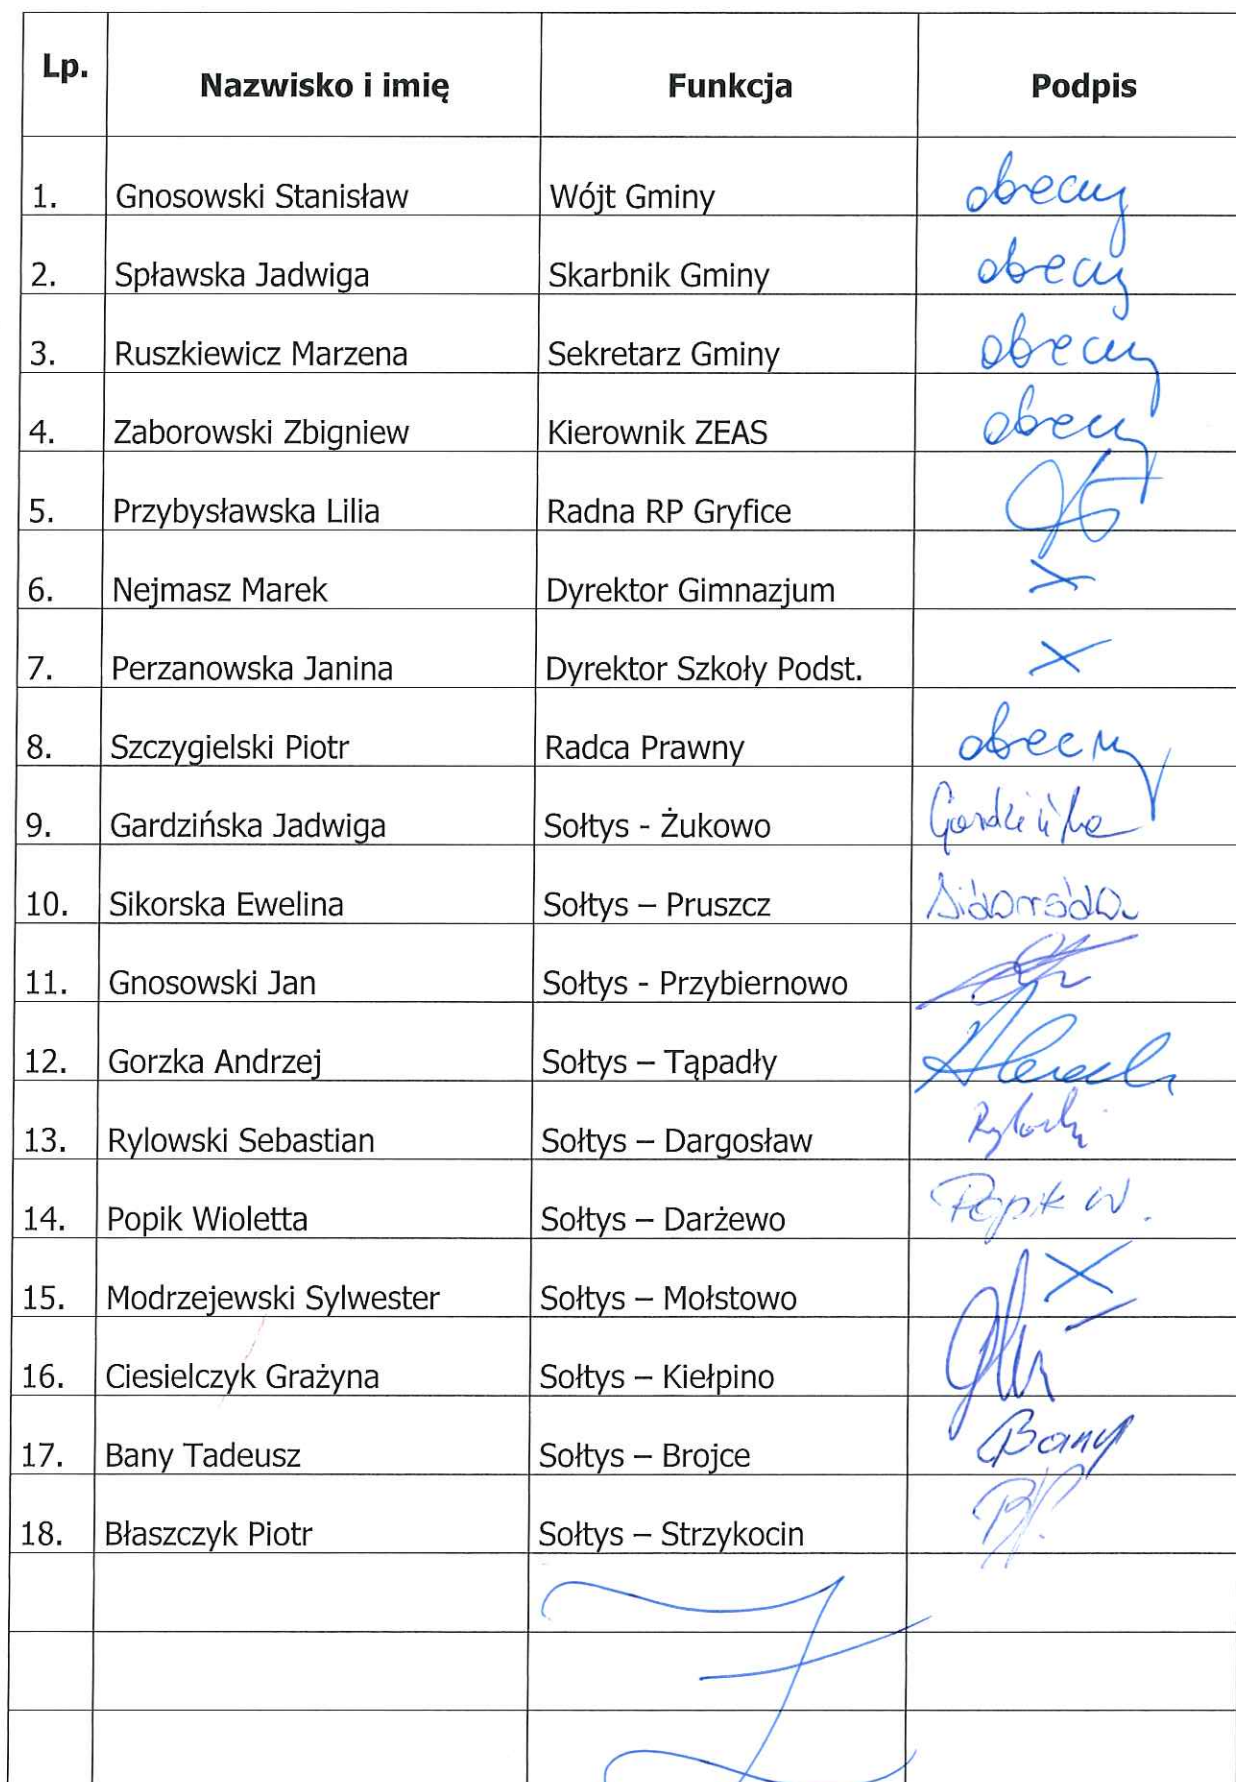 Lp. Nazwisko i imię Funkcja Podpis
1. Gnosowski Stanisław Wójt Gminy obecny
2. Spławska Jadwiga Skarbnik Gminy obecny
3. Ruszkiewicz Marzena Sekretarz Gminy obecny
4. Zaborowski Zbigniew Kierownik ZEAS obecny
5. Przybysławska Lilia Radna RP Gryfice
6. Nejmasz Marek Dyrektor Gimnazjum X
7. Perzanowska Janina Dyrektor Szkoły Podst. X
8. Szczygielski Piotr Radca Prawny obecny
9. Gardzińska Jadwiga Sołtys - Żukowo Gardzińska
10. Sikorska Ewelina Sołtys – Pruszcz Sikorska
11. Gnosowski Jan Sołtys - Przybiernowo
12. Gorzka Andrzej Sołtys – Tąpadły
13. Rylowski Sebastian Sołtys – Dargosław
14. Popik Wioletta Sołtys – Darżewo Popik W.
15. Modrzejewski Sylwester Sołtys – Mołstowo X
16. Ciesielczyk Grażyna Sołtys – Kiełpino
17. Bany Tadeusz Sołtys – Brojce Bany
18. Błaszczyk Piotr Sołtys – Strzykocin